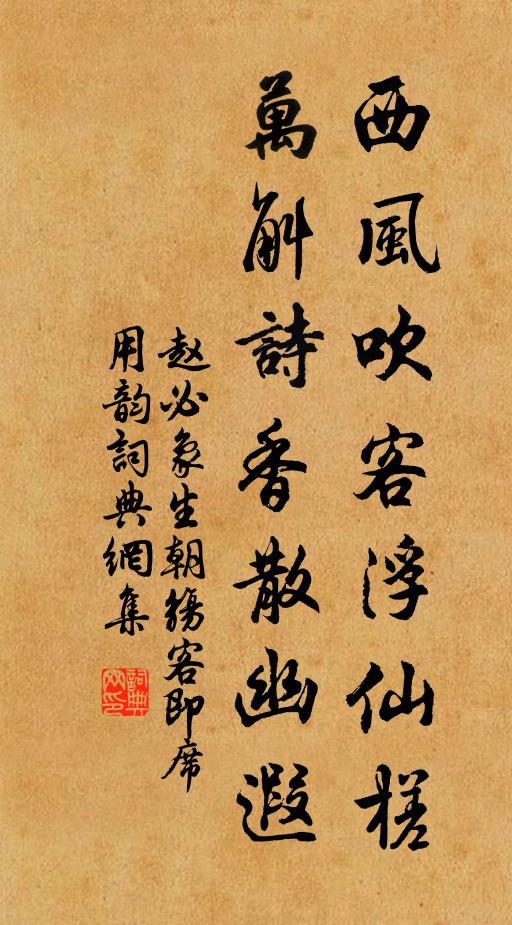 西風吹客浮仙槎
萬斛詩香散幽遐
赵必象生朝觞客即席
用韵詞典網集
詞典网印